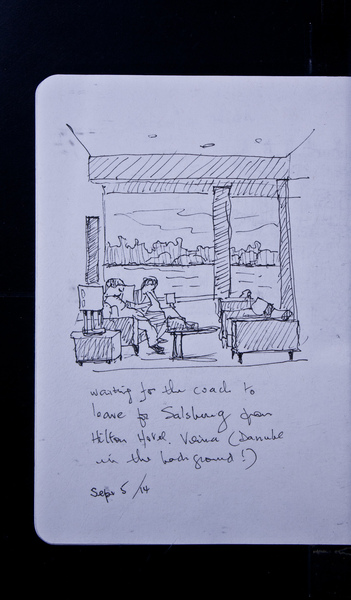 waiting for the coach to
leave for Salsburg from
Hilton Hotel. Vienna (Danube
in the background!)
Sept 5/14